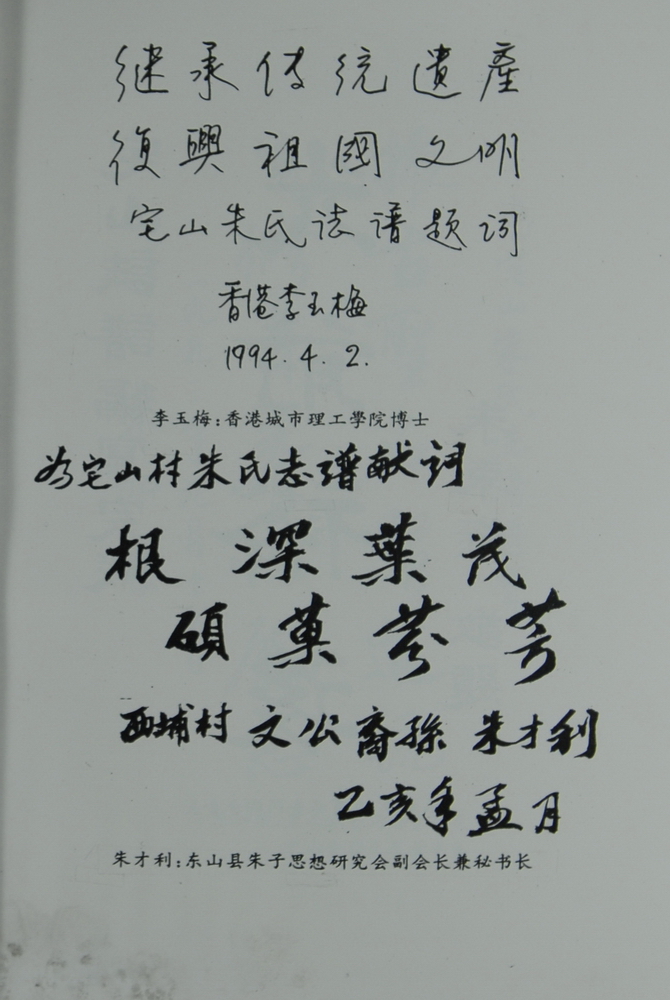 继承传统遺產
復興祖國文明
宅山朱氏誌譜题词
香港李玉梅
1994.4.2.
李玉梅:香港城市理工學院博士
为宅山村朱氏志譜献詞
根深葉茂
碩菓芬芳
西埔村 文公裔孫 朱才利
乙亥年孟月
朱才利:东山县朱子思想研究会副会长兼秘书长